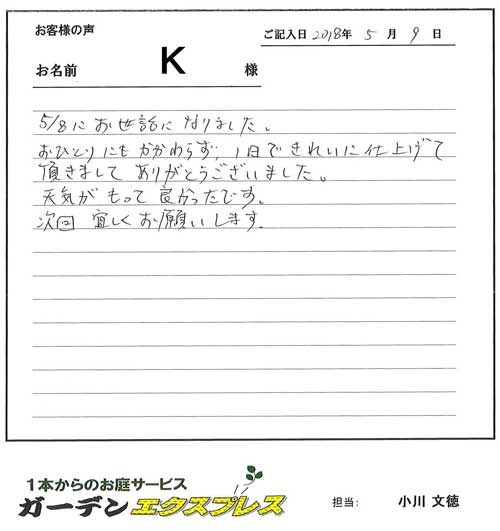 お客様の声
ご記入日 2018年 5 月 9 日
お名前 K 様
5/8に お世話に なりました。
おひとりにも かかわらず、1日で きれいに 仕上げて
頂きまして ありがとうございました。
天気が もって 良かったです。
次回 宜しく お願いします。
1本からのお庭サービス
ガーデン エクスプレス
担当: 小川 文徳